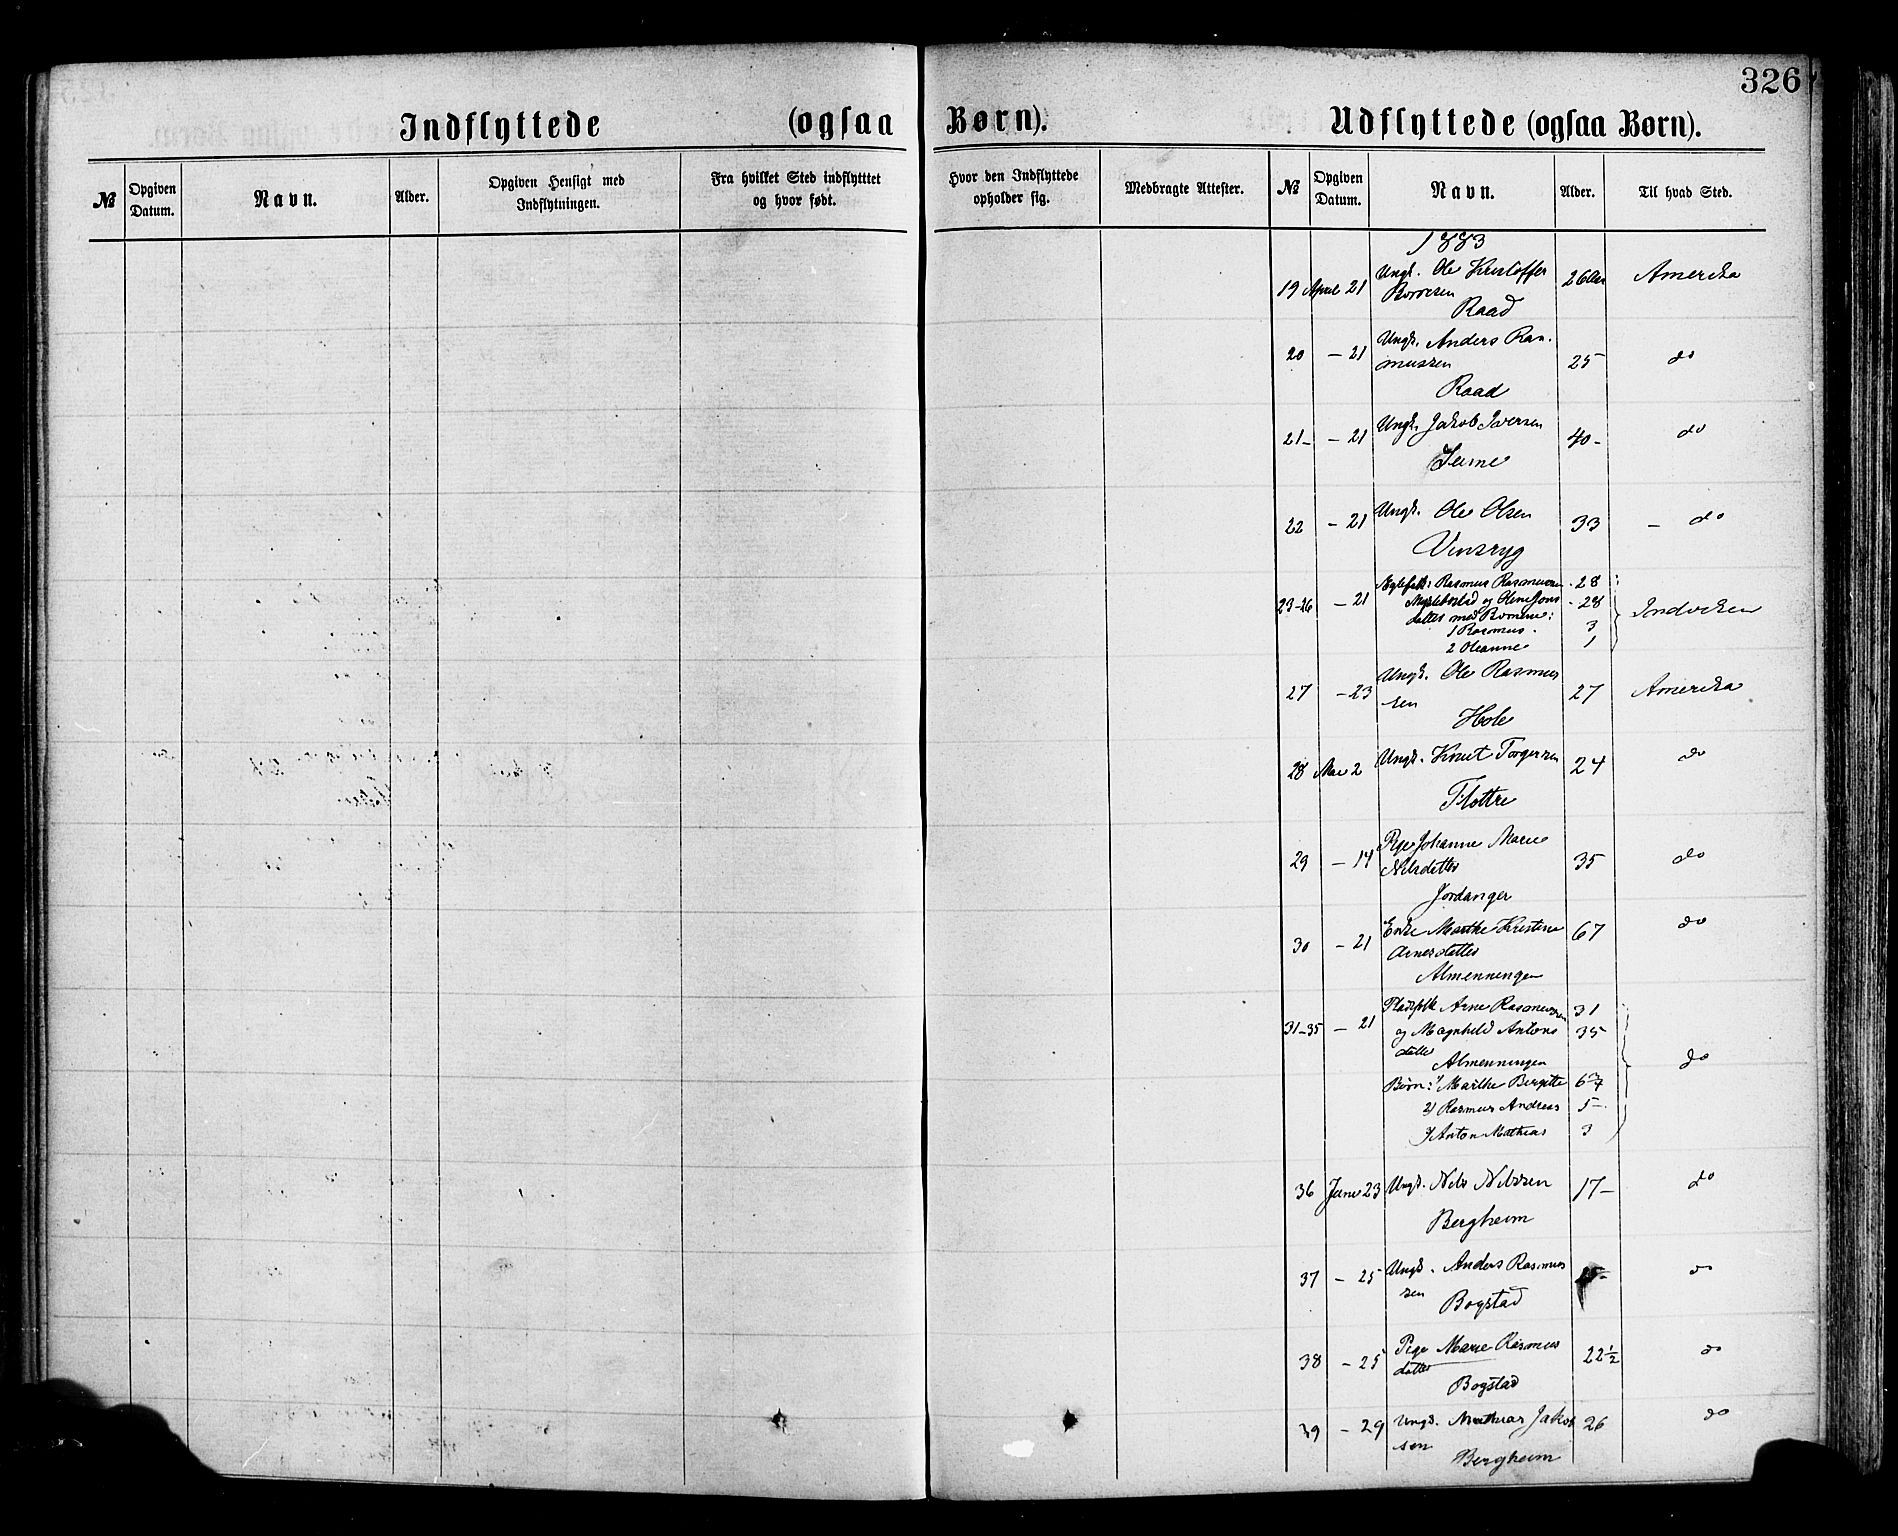 326
Indflyttede (ogsaa Børn).
Udflyttede (ogsaa Børn).
№ Opgiven Datum. Navn. Alder. Opgiven Hensigt med Indflytningen. Fra hvilket Sted indflytttet og hvor født. Hvor den Indflyttede opholder sig. Medbragte Attester. № Opgiven Datum. Navn. Alder. Til hvad Sted.
1883
19 April 21 Ungk. Ole Kristoffer 26 Amerika
Raad
20 – 21 Ungk. Anders Ras- 25 do
mussen
Raad
21 – 21 Ungk. Jakob Iversen 40 – do
22 – 21 Ungk. Ole Olsen 33 – do
Vinsryg
23–26 – 21 Rasmus Rasmussen 28
og Oline Jons 28 Indviken
datter med Børnene:
1 Rasmus. 3
2 Oleanne 1
27 – 23 Ungk. Ole Rasmus 27 Amerika
sen
Hole
28 Mai 2 Ungk. Knut Torgersen 24 do
Flottre
29 – 14 Pige Johanne Marie 35 do
Nilsdatter
Jordanger
30 – 21 Enke Marthe Kristine 67 do
Arnesdatter
Almenningen
31–35 – 21 Pladsfolk Arne Rasmussen 31
og Magnhild Antons 35
datter
Almenningen do
Børn: 1) Marthe Bergitte 6 3/4
2) Rasmus Andreas 5 –
3) Anton Mathias 3
36 Juni 23 Ungk. Nils Nilssen 17 – do
Bergheim
37 – 25 Ungk. Anders Rasmus do
sen
Bogstad
38 – 25 Pige Marie Rasmus 22 1/2 do
datter
Bogstad
39 – 29 Ungk. Mathias Jakob 26 do
sen
Bergheim